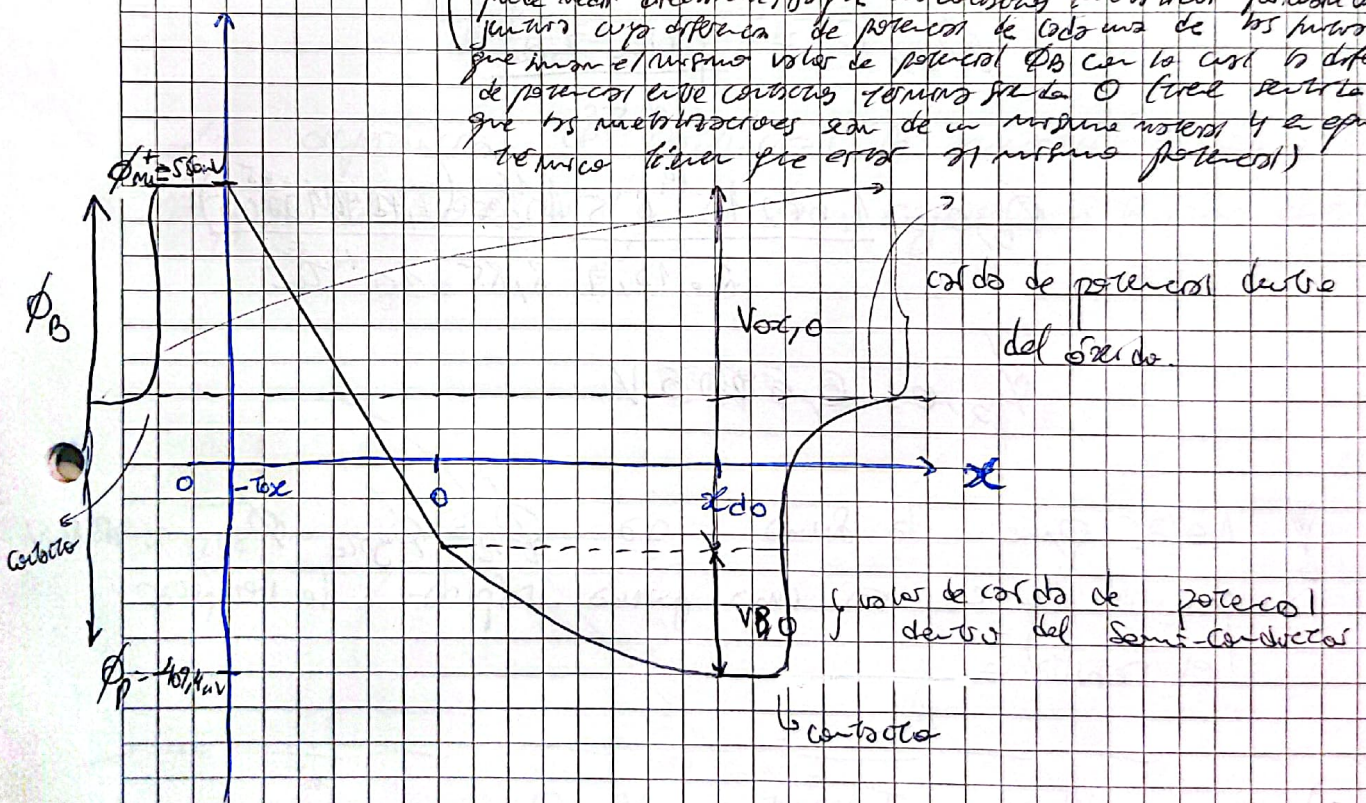 juntura cuya diferencia de potencial de cada una de las
que suman el mismo valor de potencial ϕB con lo cual la
de potencial entre contactos termina siendo 0 (tiene sentido
que las metalizaciones sean de un mismo material y en
térmico tienen que estar al mismo potencial)
ϕn+ = 550mV
ϕB
Vox,0
caída de potencial dentro
del óxido.
0
-Tox
0
xdo
x
contacto
VB,0
valor de caída de potencial
dentro del Semi-conductor
ϕp -409,4mV
contacto